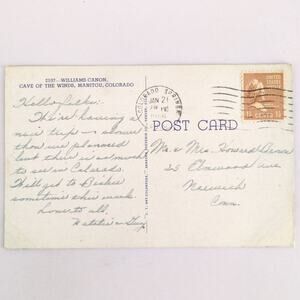 2197—WILLIAMS CANON,
CAVE OF THE WINDS, MANITOU, COLORADO
Hello folks:
We're having a
nice trip - slower
than we planned
but there is so much
to see in Colorado.
We'll get to Bisbee
sometime this week.
Love to all,
COLORADO SPRINGS
JAN 21
PM
UNITED STATES
1½ CENTS
POST CARD
Mr. & Mrs. Howard
25 Elmwood Ave
Norwich
Conn.